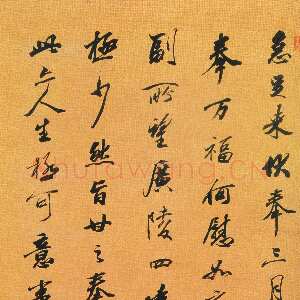 急足來伏奉三月
奉万福何慰如
副所望廣陵四
極少然旨甘之奉
此亦人生極可意
shufawang.CN